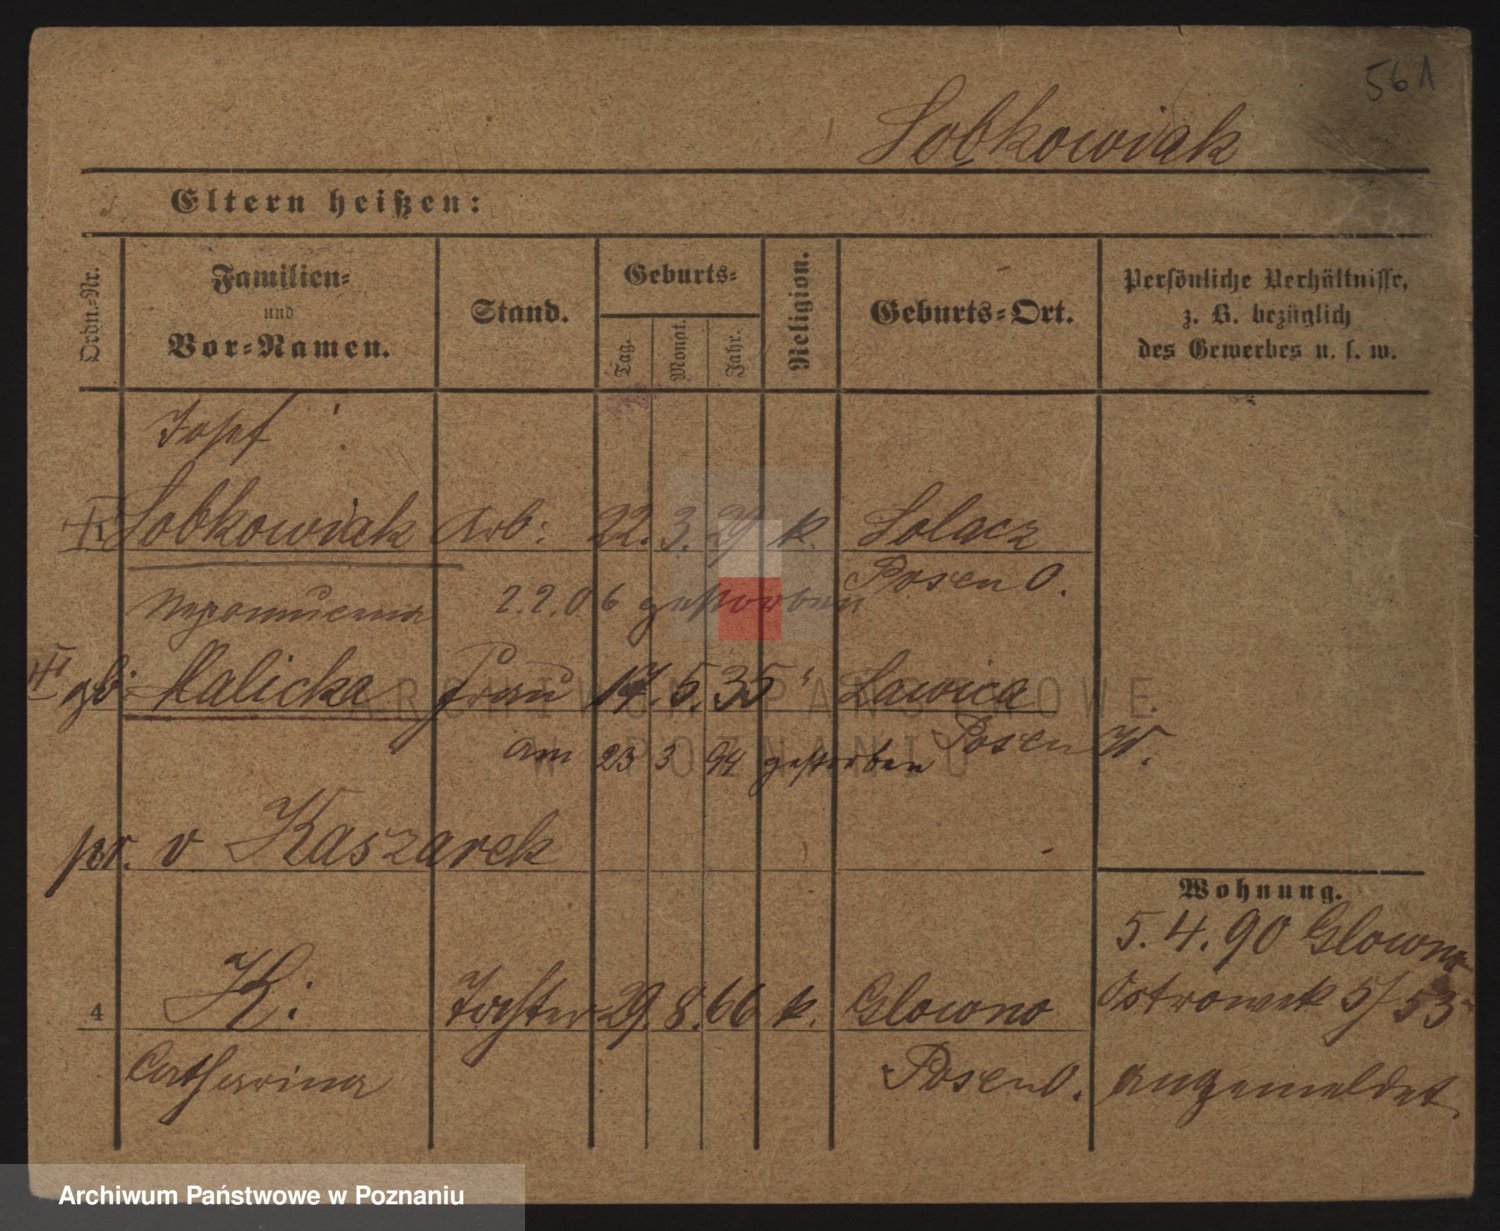 561
Sobkowiak
Eltern heißen:
Ordn.-Nr.
Familien-
und
Vor-Namen.
Stand.
Geburts-
Tag.
Monat.
Jahr.
Religion.
Geburts-Ort.
Persönliche Verhältnisse,
z. B. bezüglich
des Gewerbes u. s. w.
Josef
Sobkowiak Arb: 22. 3. 29 k. Solacz
Posen O.
Nepomucena 2.2.06 gestorben
gb. Malicka Frau 17. 5. 35 " Lawica
Posen W.
am 23 3 94 gestorben
ARCHIWUM PAŃSTWOWE
W POZNANIU
pr. v Kaszarek
Wohnung.
5. 4. 90 Glowno
4 K. Tochter 29. 8. 66 k. Glowno
Ostrowek 5/53
Catharina Posen O. angemeldet.
Archiwum Państwowe w Poznaniu